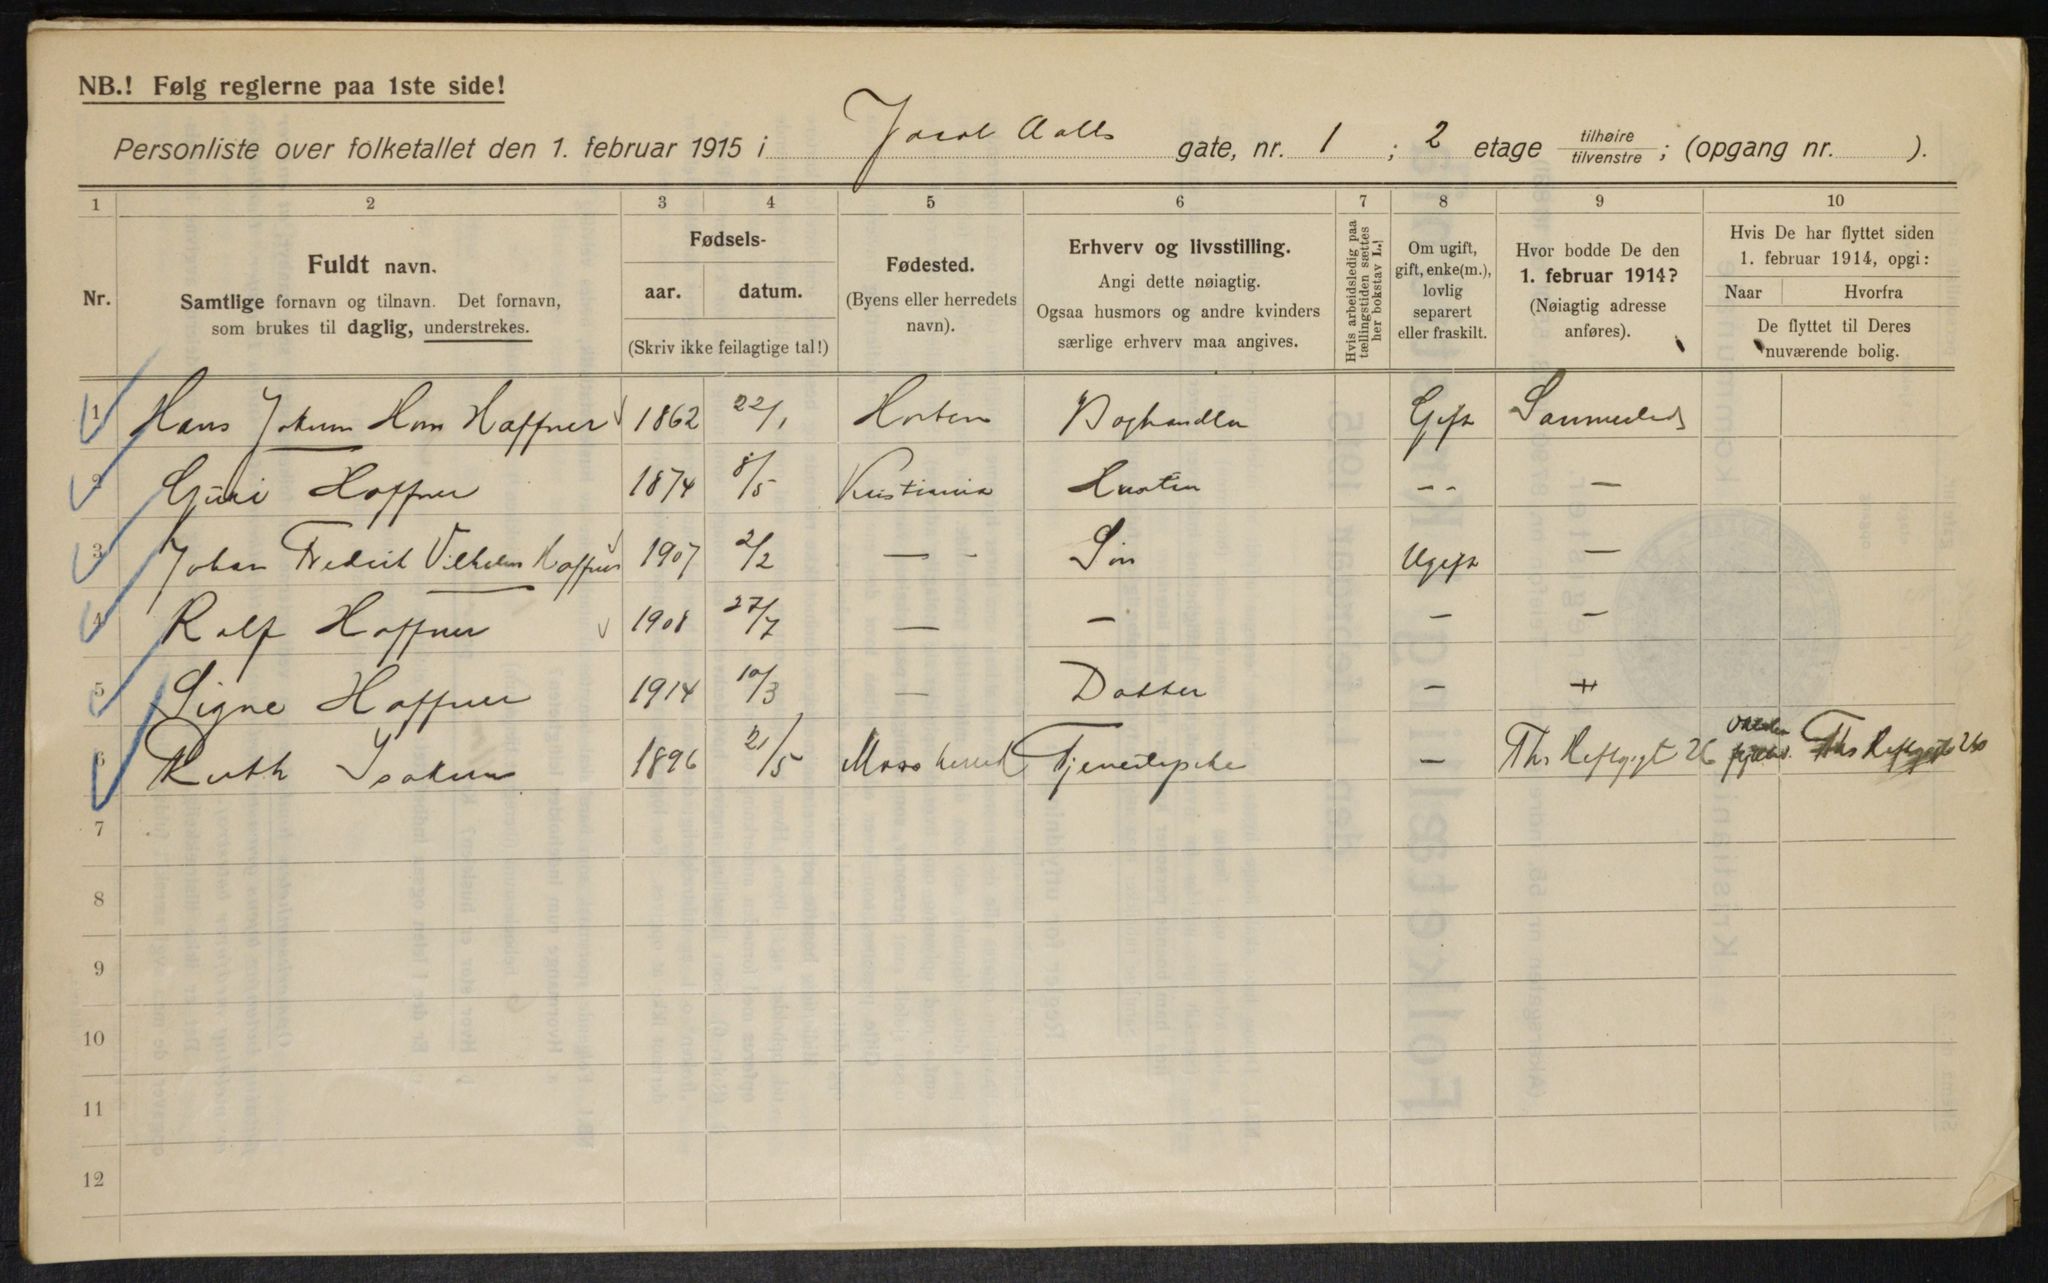 NB.! Følg reglerne paa 1ste side!
Personliste over folketallet den 1. februar 1915 i Jacob Aalls gate, nr. 1 ; 2 etage tilhøire tilvenstre ; (opgang nr. ).
1 2 3 4 5 6 7 8 9 10
Nr.
Fuldt navn.
Samtlige fornavn og tilnavn. Det fornavn,
som brukes til daglig, understrekes.
Fødsels-
aar. datum.
(Skriv ikke feilagtige tal!)
Fødested.
(Byens eller herredets
navn).
Erhverv og livsstilling.
Angi dette nøiagtig.
Ogsaa husmors og andre kvinders
særlige erhverv maa angives.
Hvis arbeidsledig paa
tællingstiden sættes
her bokstav L.!
Om ugift,
gift, enke(m.),
lovlig
separert
eller fraskilt.
Hvor bodde De den
1. februar 1914?
(Nøiagtig adresse
anføres).
Hvis De har flyttet siden
1. februar 1914, opgi:
Naar Hvorfra
De flyttet til Deres
nuværende bolig.
1 Hans Jokum Horn Haffner 1862 22/1 Horten Boghandler Gift Sammesteds
2 Guri Haffner 1874 8/5 Kristiania Hustru -- —
3 Johan Fredrik Vilhelm Haffner 1907 2/2 — - Søn Ugift —
4 Rolf Haffner 1908 27/7 — — — —
5 Signe Haffner 1914 10/3 — Datter — +
6 Ruth Isaksen 1896 21/5 Moss herred Tjenestepike — Ths Heftyesgt 26 Ths Heftyesgt 26
7
8
9
10
11
12